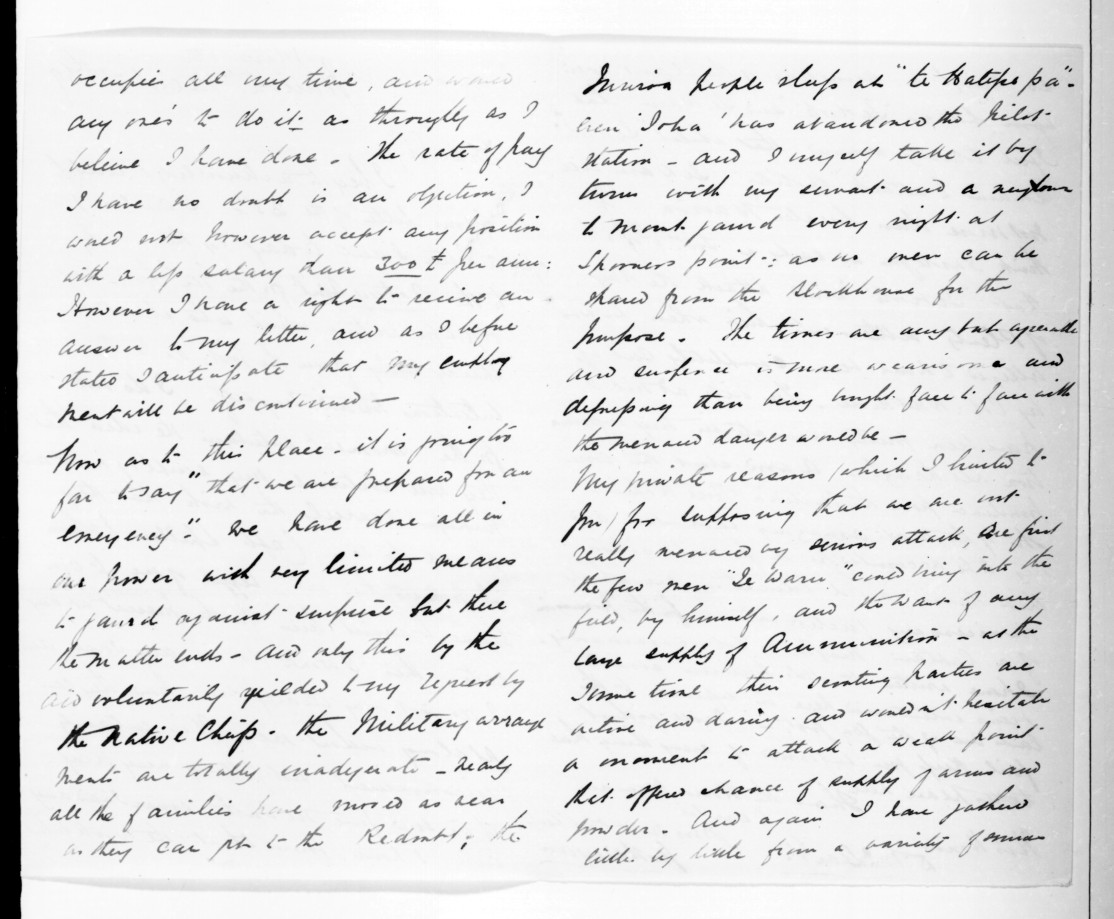 occupies all my time, and would
any one's to do it as throughly as I
believe I have done – The rate of pay
I have no doubt is an objection, I
would not however accept any position
with a less salary than 300 £ per ann:
However I have a right to receive an
answer to my letter, and as I before
stated I anticipate that my employ
ment will be discontinued –
Now as to this place – it is going too
far to say "that we are prepared for an
emergency". We have done all in
our power with very limited means
to guard against surprise but there
the matter ends – and only this by the
aid voluntarily yielded to my request by
the Native Chiefs – the Military arrange
ments are totally inadequate – nearly
all the families have moved as near
as they can get to the Redoubt; the
people sleep at "te Hatepe pa" –
even 'Ioha' has abandoned the Pilot
station – and I myself take it by
turns with my servant and a neighbour
to mount guard every night at
Spooners point: as no men can be
spared from the Blockhouse for the
purpose. The times are any but agreeable
and suspense is more wearisome and
depressing than being brought face to face with
the menaced danger would be –
My private reasons (which I hinted to
you) for supposing that we are not
really menaced by serious attack, are first
the few men "Te Waru" could bring into the
field, by himself, and the want of any
large supply of Ammunition – at the
same time their scouting parties are
active and daring and wouldn't hesitate
a moment to attack a weak point
that offered chance of supply of arms and
powder. And again I have gathered
little by little from a variety of